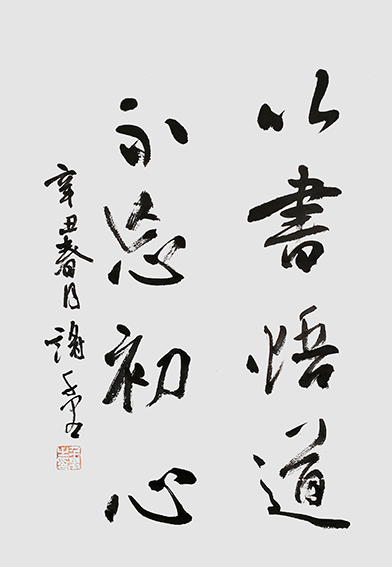 以书悟道
不忘初心
辛丑春月 谢